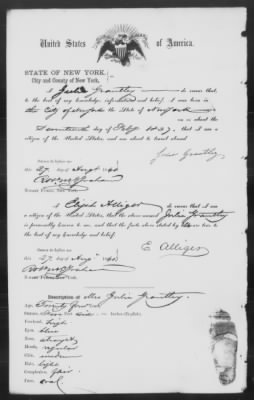 United States of America.
STATE OF NEW YORK.
City and County of New York,
I Julia Grantley do swear that
to the best of my knowledge, information and belief, I was born in
the City of New York in the State of New York
on or about the
day of 1837, that I am a
citizen of the United States, and am about to travel abroad
Julia Grantley
Sworn to before me
this 27 day of Augt 186
Notary Public, New York.
I Elijah Alliger do swear that I am a
citizen of the United States, that the above named Julia Grantley
is personally known to me, and that the facts above stated by her are
to the best of my knowledge and belief.
E. Alliger
Sworn to before me
this 27 day of Augt 186
Notary Public New York.
Description of Mrs Julia Grantley.
Age, Twenty four
Stature, Five feet six inches (English).
Forehead, high
Eyes, blue
Nose, straight
Mouth, regular
Chin,
Hair, light
Complexion, fair
Face, oval